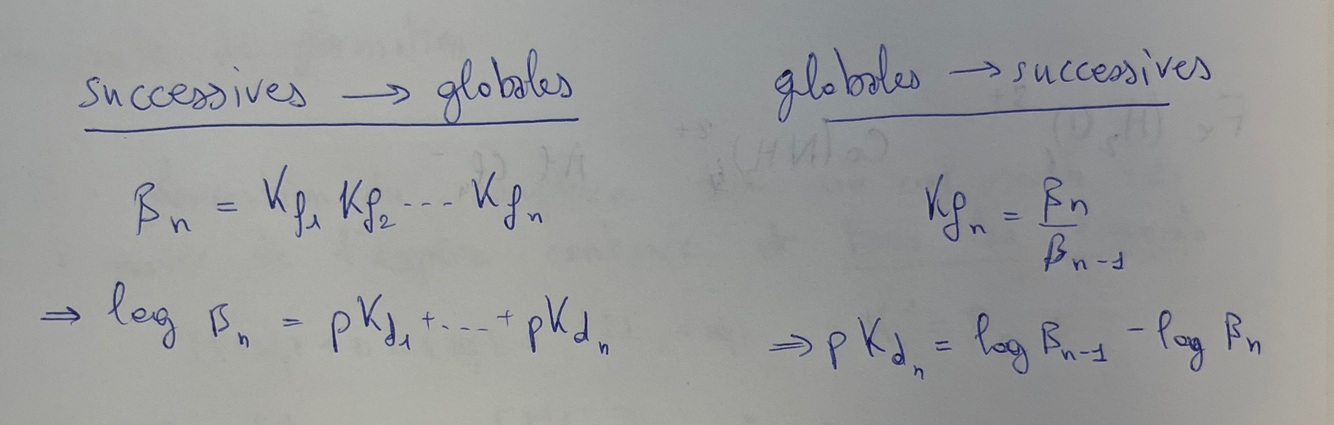 successives → globales
β_n = K_f₁ K_f₂ ... K_f_n
⇒ log β_n = pK_d₁ + ... + pK_d_n
globales → successives
K_f_n = β_n / β_n-1
⇒ pK_d_n = log β_n-1 - log β_n